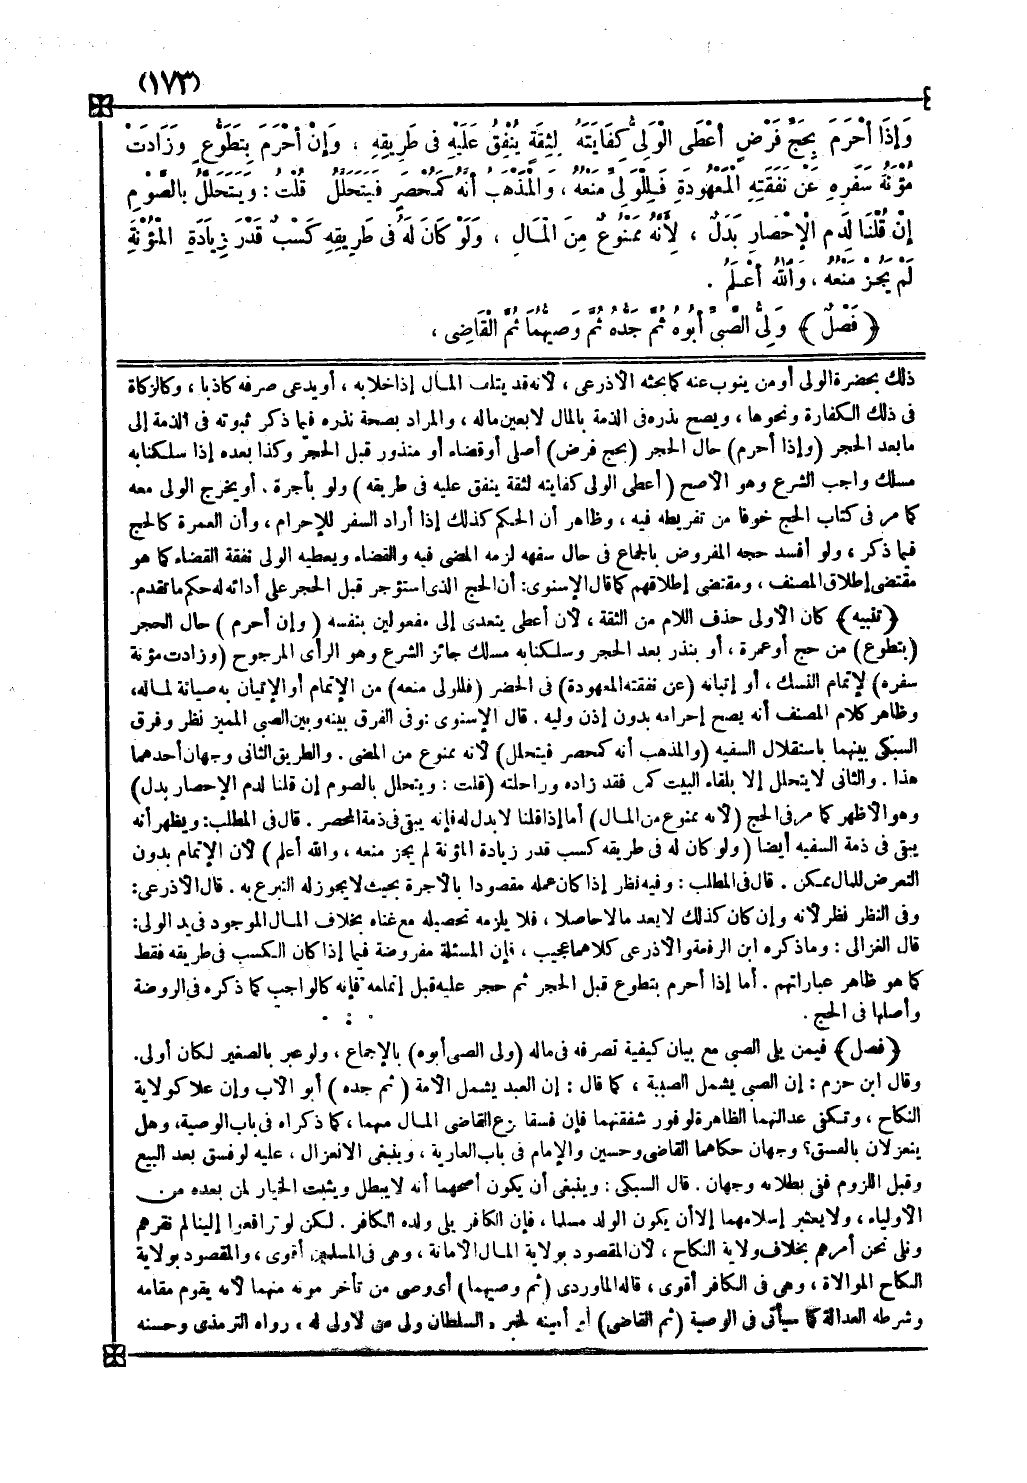 (١٧٣)
وَإِذَا أَحْرَمَ بِحَجِّ فَرْضٍ أَعْطَى الْوَلِيُّ كِفَايَتَهُ لِثِقَةٍ يُنْفِقُ عَلَيْهِ فِى طَرِيقِهِ ، وَإِنْ أَحْرَمَ بِتَطَوُّعٍ وَزَادَتْ
مُؤْنَةُ سَفَرِهِ عَنْ نَفَقَتِهِ الْمَعْهُودَةِ فَلِلْوَلِىِّ مَنْعُهُ ، وَالْمَذْهَبُ أَنَّهُ كَمُحْصَرٍ فَيَتَحَلَّلُ قُلْتُ : وَيَتَحَلَّلُ بِالصَّوْمِ
إِنْ قُلْنَا لِدَمِ الْإِحْصَارِ بَدَلٌ ، لِأَنَّهُ مَمْنُوعٌ مِنَ الْمَالِ ، وَلَوْ كَانَ لَهُ فِى طَرِيقِهِ كَسْبُ قَدْرِ زِيَادَةِ الْمُؤْنَةِ
لَمْ يَجُزْ مَنْعُهُ ، وَاللهُ أَعْلَمُ .
﴿ فَصْلٌ ﴾ وَلِىُّ الصَّبِىِّ أَبُوهُ ثُمَّ جَدُّهُ ثُمَّ وَصِيُّهُمَا ثُمَّ الْقَاضِى ،
ذلك بحضرة الولى أو من ينوب عنه كما بحثه الأذرعى ، لأنه قد يتلف المال إذا خلا به ، أو يدعى صرفه كاذبا ، وكالزكاة
فى ذلك الكفارة ونحوها ، ويصح نذره فى الذمة بالمال لا بعين ماله ، والمراد بصحة نذره فيما ذكر ثبوته فى الذمة إلى
ما بعد الحجر (وإذا أحرم) حال الحجر (بحج فرض) أصلى أو قضاء أو منذور قبل الحجر وكذا بعده إذا سلكنا به
مسلك واجب الشرع وهو الأصح (أعطى الولى كفايته لثقة ينفق عليه فى طريقه) ولو بأجرة . أو يخرج الولى معه
كما مر فى كتاب الحج خوفا من تفريطه فيه ، وظاهر أن الحكم كذلك إذا أراد السفر للإحرام ، وأن العمرة كالحج
فيما ذكر ، ولو أفسد حجه المفروض بالجماع فى حال سفهه لزمه المضى فيه والقضاء ويعطيه الولى نفقة القضاء كما هو
مقتضى إطلاق المصنف ، ومقتضى إطلاقهم كما قال الإسنوى: أن الحج الذى استؤجر قبل الحجر على أدائه له حكم ما تقدم.
﴿ تنبيه ﴾ كان الأولى حذف اللام من الثقة ، لأن أعطى يتعدى إلى مفعولين بنفسه (وإن أحرم) حال الحجر
(بتطوع) من حج أو عمرة ، أو بنذر بعد الحجر وسلكنا به مسلك جائز الشرع وهو الرأى المرجوح (وزادت مؤنة
سفره) لإتمام النسك ، أو إتيانه (عن نفقته المعهودة) فى الحضر (فللولى منعه) من الإتمام أو الإتيان به صيانة لماله،
وظاهر كلام المصنف أنه يصح إحرامه بدون إذن وليه . قال الإسنوى : وفى الفرق بينه وبين الصبى المميز نظر وفرق
السبكى بينهما باستقلال السفيه (والمذهب أنه كمحصر فيتحلل) لأنه ممنوع من المضى . والطريق الثانى وجهان أحدهما
هذا . والثانى لا يتحلل إلا بلقاء البيت كمن فقد زاده وراحلته (قلت : ويتحلل بالصوم إن قلنا لدم الإحصار بدل)
وهو الأظهر كما مر فى الحج (لأنه ممنوع من المال) أما إذا قلنا لا بدل له فإنه يبقى فى ذمة المحصر . قال فى المطلب: ويظهر أنه
يبقى فى ذمة السفيه أيضا (ولو كان له فى طريقه كسب قدر زيادة المؤنة لم يجز منعه ، والله أعلم) لأن الإتمام بدون
التعرض للمال ممكن . قال فى المطلب : وفيه نظر إذا كان عمله مقصودا بالأجرة بحيث لا يجوز له التبرع به . قال الأذرعى:
وفى النظر نظر لأنه وإن كان كذلك لا يعد مالا حاصلا ، فلا يلزمه تحصيله مع غناه بخلاف المال الموجود فى يد الولى:
قال الغزالى : وما ذكره ابن الرفعة والأذرعى كلاهما عجيب ، فإن المسئلة مفروضة فيما إذا كان الكسب فى طريقه فقط
كما هو ظاهر عباراتهم . أما إذا أحرم بتطوع قبل الحجر ثم حجر عليه قبل إتمامه فإنه كالواجب كما ذكره فى الروضة
وأصلها فى الحج .
﴿ فصل ﴾ فيمن يلى الصبى مع بيان كيفية تصرفه فى ماله (ولى الصبى أبوه) بالإجماع ، ولو عبر بالصغير لكان أولى.
وقال ابن حزم : إن الصبى يشمل الصبية ، كما قال : إن العبد يشمل الأمة (ثم جده) أبو الأب وإن علا كولاية
النكاح ، وتكفى عدالتهما الظاهرة لوفور شفقتهما فإن فسقا نزع القاضى المال منهما ، كما ذكراه فى باب الوصية، وهل
ينعزلان بالفسق؟ وجهان حكاهما القاضى وحسين والإمام فى باب العارية ، وينبغى الانعزال ، عليه لو فسق بعد البيع
وقبل اللزوم ففى بطلانه وجهان . قال السبكى : وينبغى أن يكون أصحهما أنه لا يبطل ويثبت الخيار لمن بعده من
الأولياء ، ولا يعتبر إسلامهما إلا أن يكون الولد مسلما ، فإن الكافر يلى ولده الكافر . لكن لو ترافعوا إلينا لم نقرهم
ونلى نحن أمرهم بخلاف ولاية النكاح ، لأن المقصود بولاية المال الأمانة ، وهى فى المسلمين أقوى ، والمقصود بولاية
النكاح الموالاة ، وهى فى الكافر أقوى ، قاله الماوردى (ثم وصيهما) أى وصى من تأخر موته منهما لأنه يقوم مقامه
وشرطه العدالة كما سيأتى فى الوصية (ثم القاضى) أو أمينه لخبر « السلطان ولى من لا ولى له » رواه الترمذى وحسنه